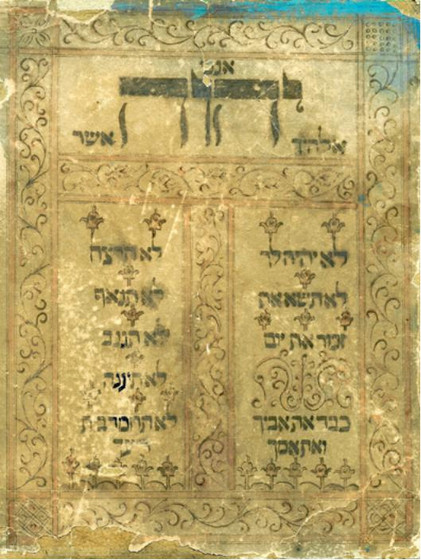 אנכי
יהוה
אלהיך אשר
לא יהיה לך
לא תשא את
זכור את יום
כבד את אביך
ואת אמך
לא תרצח
לא תנאף
לא תגנב
לא תענה
לא תחמד בית
רעך